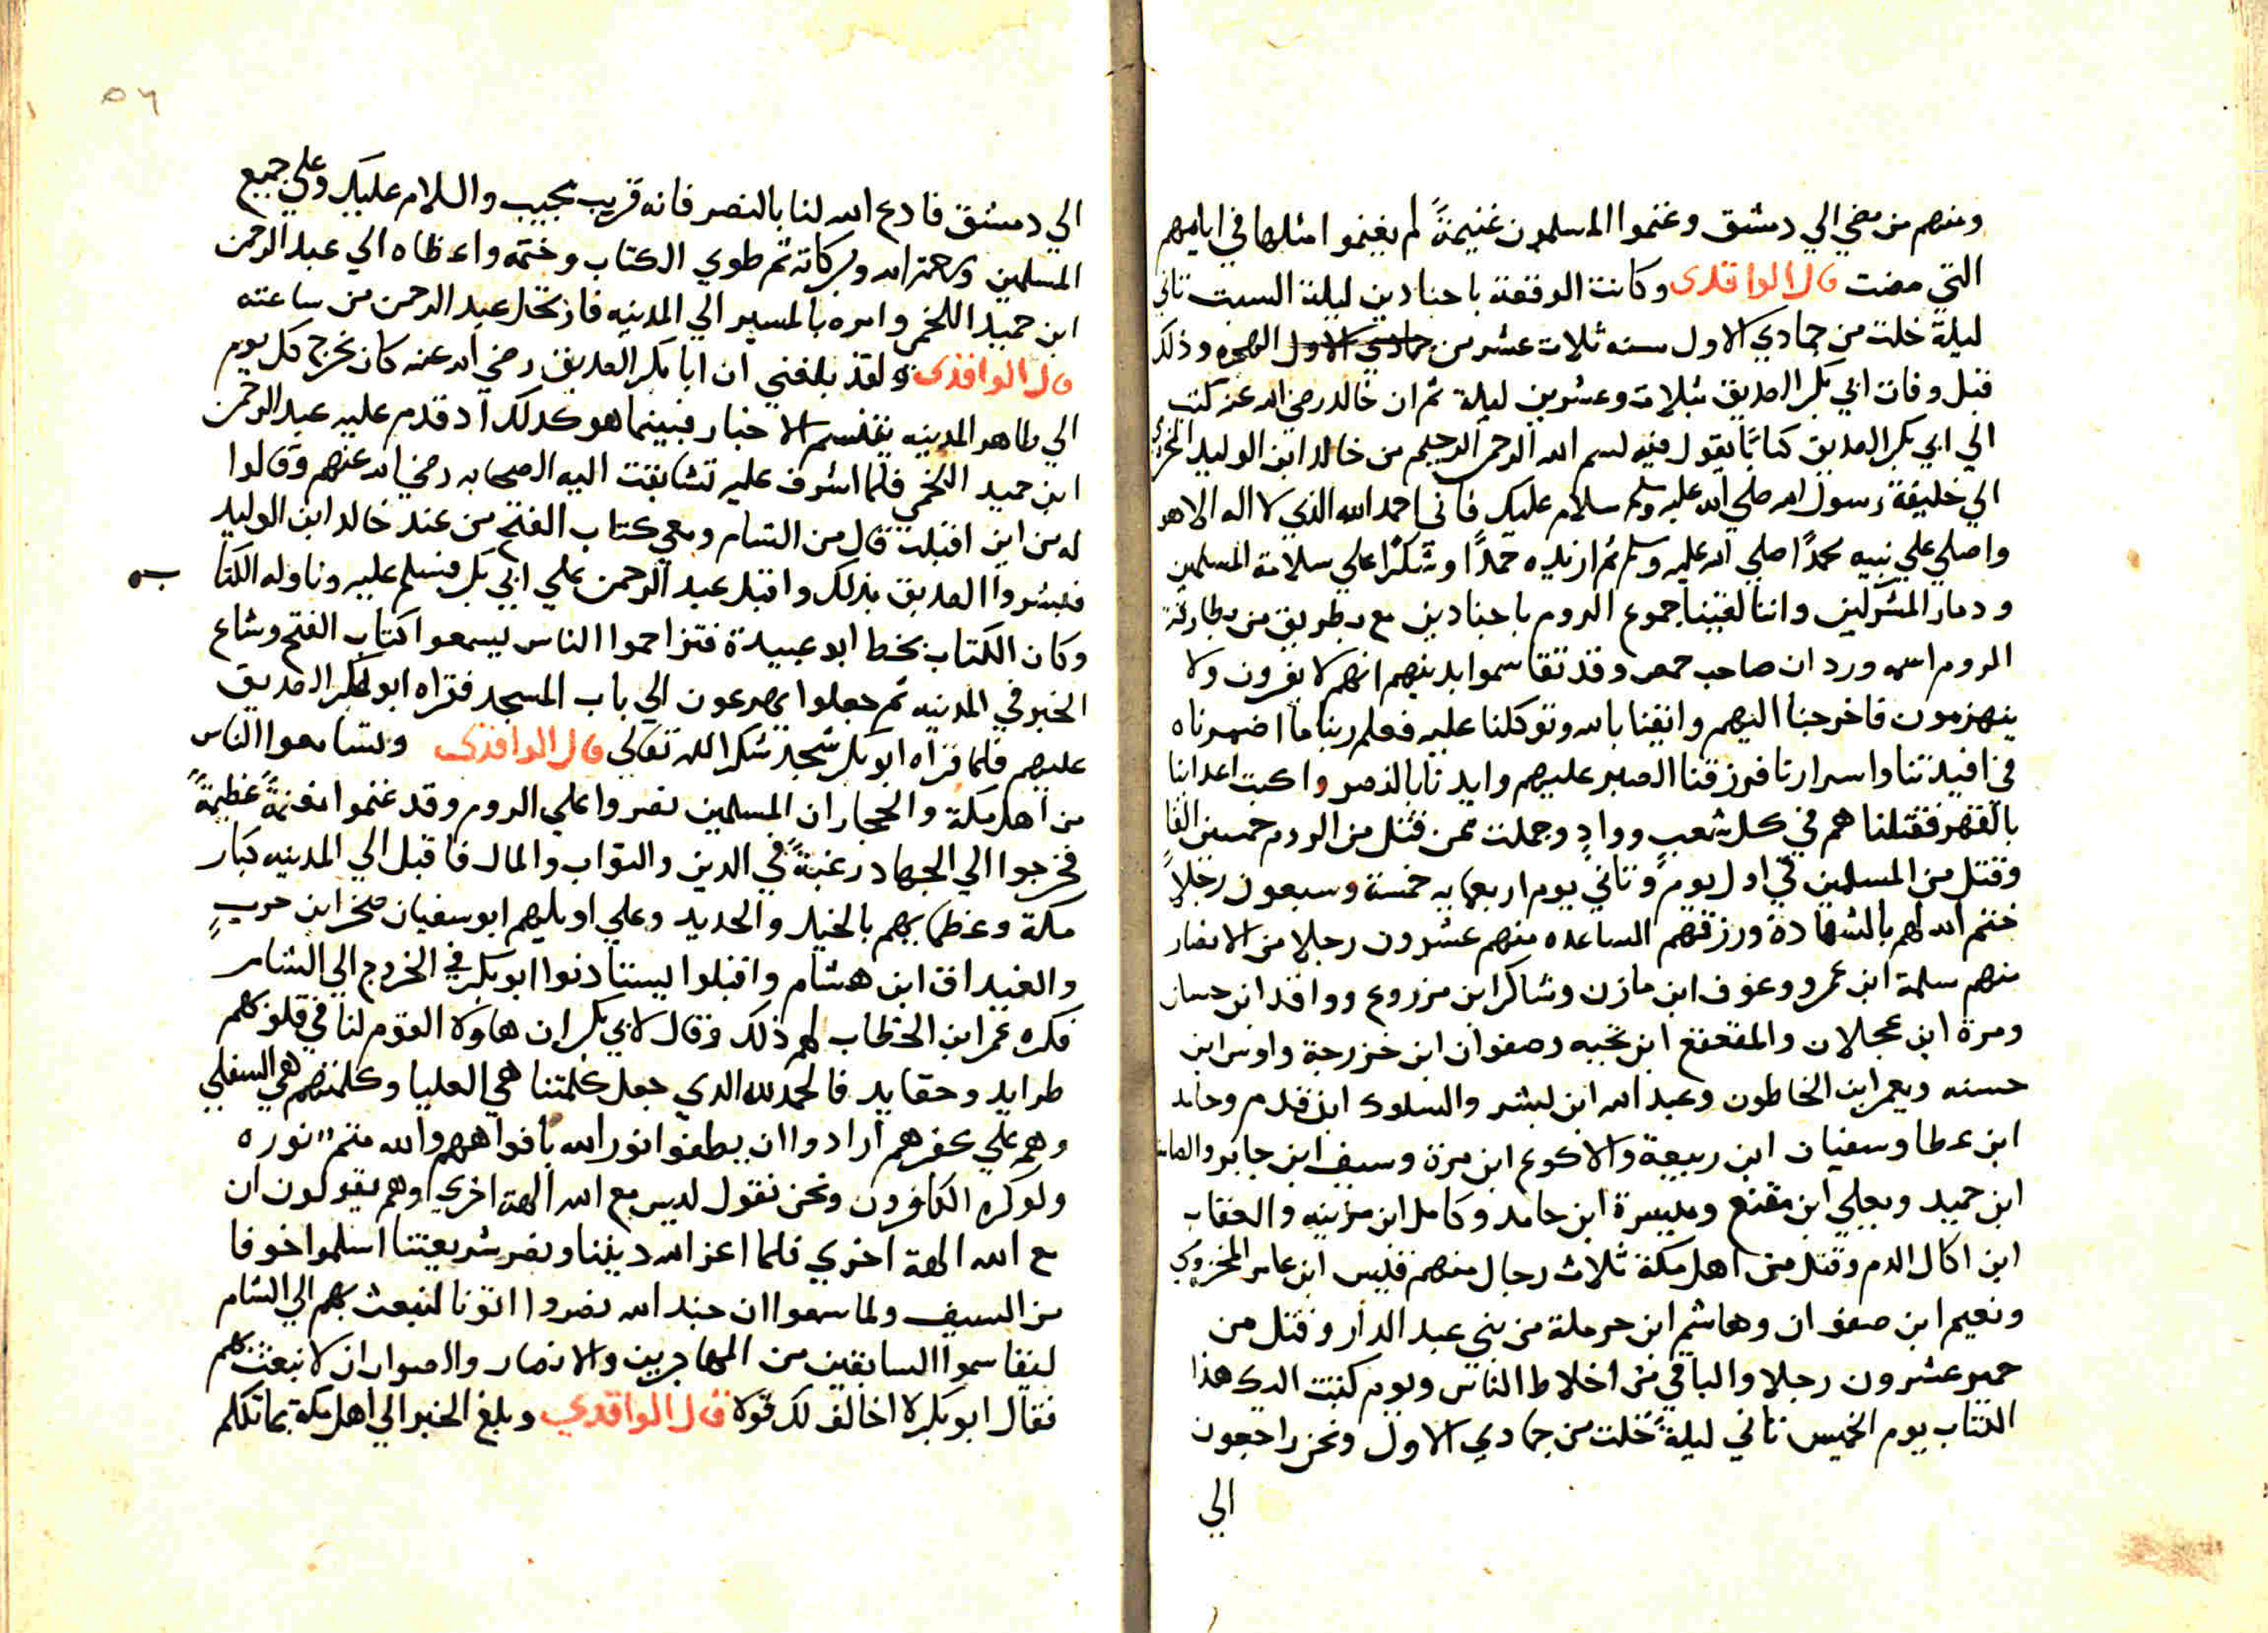 ومنهم من مضي الي دمشق وغنموا المسلمون غنيمةً لم يغنموا امثلها في ايامهم
التي مضت قال الواقدى وكانت الوقعة باجنادين ليلة السبت ثاني
ليلة خلت من جمادي الاول سنه ثلاث عشر من جمادي الاول الهجره وذلك
قبل وفات ابي بكر الصديق بثلاث وعشرين ليلة ثم ان خالد رضي الله عنه كتب
الي ابي بكر الصديق كتابًا يقول فيه بسم الله الرحمن الرحيم من خالد ابن الوليد المخزومي
الي خليفة رسول الله صلي الله عليه وسلم سلام عليك فاني احمد الله الذي لا اله الا هو
واصلي علي نبيه محمدًا صلي الله عليه وسلم ثم ازيده حمدًا وشكرًا علي سلامة المسلمين
ودمار المشركين واننا لقينا جموع الروم باجنادين مع بطريق من بطارقة
الروم اسمه وردان صاحب حمص وقد تقاسموا بدينهم انهم لا يفرون ولا
ينهزمون فاخرجنا اليهم واثقنا بالله وتوكلنا عليه فعلم ربنا ما اضمرناه
في افيدتنا واسرارنا فرزقنا الصبر عليهم وايدنا بالنصر واكبت اعداينا
بالقهر فقتلناهم في كل شعب ووادٍ وجملت من قتل من الروم خمسين الفاً
وقتل من المسلمين في اول يومً وثاني يوم اربعمايه خمسة وسبعون رجلاً
ختم الله لهم بالشهادة ورزقهم الساعده منهم عشرون رجلا من الانصار
منهم سلمة ابن عمرو وعوف ابن مازن وشاكر ابن مزروع وواقد ابن حسان
ومرة ابن عجلان والمقعقع ابن نخبه وصفوان ابن خزرجة واوس ابن
حسنه ويعمر ابن الخاطون وعبد الله ابن بشر والسلوك ابن قدم وحامد
ابن عطا وسفيان ابن ربيعة والاكوع ابن مرة وسيف ابن جابر
ابن حميد ويعلي ابن مقنع وميسرة ابن حامد وكامل ابن مزينه والعقاب
ابن اكال الدم وقتل من اهل مكة ثلاث رجال منهم قيس ابن عامر المخزومي
ونعيم ابن صفوان وهاشم ابن حرملة من بني عبد الدار وقتل من
حمير عشرون رجلا والباقي من اخلاط الناس ويوم كتبت اليك هذا
الكتاب يوم الخميس ثاني ليلةً خلت من جمادي الاول ونحن راجعون
الي
٥٦
الي دمشق فادع الله لنا بالنصر فانه قريب مجيب والسلام عليك وعلي جميع
المسلمين ورحمة الله وبركاته ثم طوي الكتاب وختمه واعطاه الي عبد الرحمن
ابن حميد اللخمي وامره بالمسير الي المدينه فارتحل عبد الرحمن من ساعته
قال الواقدى ولقد بلغني ان ابا بكر الصديق رضي الله عنه كان يخرج كل يوم
الي ظاهر المدينه يتنسم الاخبار فبينما هو كدلك اد قدم عليه عبد الرحمن
ابن حميد اللخمي فلما اشرف عليه تسابقت اليه الصحابه رضي الله عنهم وقالوا
له من اين اقبلت قال من الشام ومعي كتاب الفتح من عند خالد ابن الوليد
فبشروا الصديق بذلك واقبل عبد الرحمن علي ابي بكر فسلم عليه وناوله الكتا به
وكان الكتاب بخط ابو عبيدة فتزاحموا الناس ليسمعوا كتاب الفتح وشاع
الخبر في المدينه ثم جعلوا يهرعون الي باب المسجد فقراه ابو بكر الصديق
عليهم فلما قراه ابو بكر سجد شكرا لله تعالي قال الواقدى وتسامعوا الناس
من اهل مكة والحجاز ان المسلمين نصروا علي الروم وقد غنموا مغنمةً عظيمةً
فخرجوا الي الجهاد رغبةً في الدين والثواب والمال فاقبل الي المدينه كبار
مكة وعظمايهم بالخيل والحديد وعلي اوليهم ابو سفيان صخر ابن حربٍ
والغيداق ابن هشام واقبلوا ليستادنوا ابو بكر في الخروج الي الشام
فكره عمر ابن الخطاب لهم ذلك وقال لابي بكر ان هاولا القوم لنا في قلوبهم
طرايد وحقايد فالحمد لله الدي جعل كلمتنا هي العليا وكلمتهم هي السفلي
وهم علي كفرهم ارادوا ان يطفوا نور الله بافواههم والله متم نوره
ولو كره الكافرون ونحن نقول ليس مع الله الهة اخري وهم يقولون ان
مع الله الهة اخري فلما اعز الله ديننا ونصر شريعتنا اسلموا خوفا
من السيف ولما سمعوا ان جند الله نصروا اتونا لنبعث بهم الي الشام
ليقاسموا السابقين من المهاجرين والانصار والصواب ان لا نبعثهم
فقال ابو بكر لا اخالف لك قولا قال الواقدي وبلغ الخبر الي اهل مكة بما تكلم